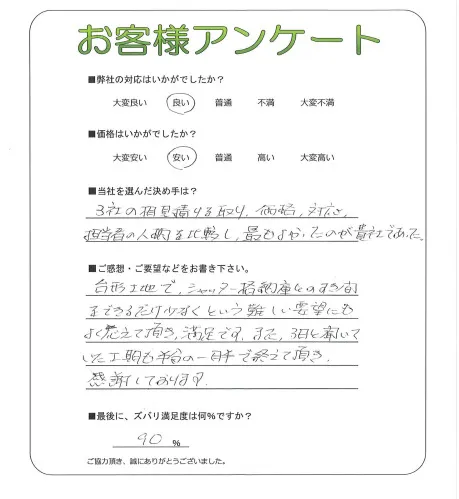 お客様アンケート
■弊社の対応はいかがでしたか？
大変良い 良い 普通 不満 大変不満
■価格はいかがでしたか？
大変安い 安い 普通 高い 大変高い
■当社を選んだ決め手は？
3社の相見積りを取り、価格、対応、
担当者の人柄を比較し、最もよかったのが貴社であった。
■ご感想・ご要望などをお書き下さい。
台形土地で、シャッター格納庫とのすき間
をできるだけ少なくという難しい要望にも
よく応えて頂き、満足です。また、3日と聞いて
いた工期も半分の一日半で終えて頂き、
感謝しております。
■最後に、ズバリ満足度は何％ですか？
90 ％
ご協力頂き、誠にありがとうございました。